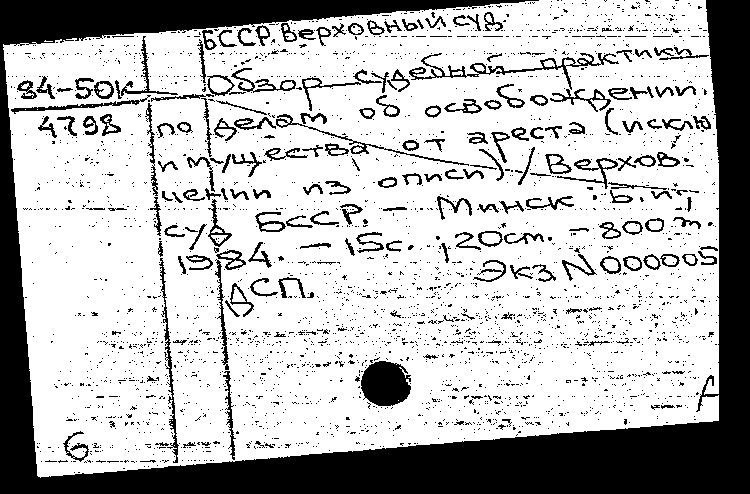 БССР. Верховный суд.
84-50к Обзор судебной практики
4798 по делам об освобождении
имущества от ареста (исклю
чении из описи) / Верхов.
суд БССР. - Минск : Б.и.,
1984. - 15с. ; 20см. - 800 т.
Экз. N 000005
ДСП.
6